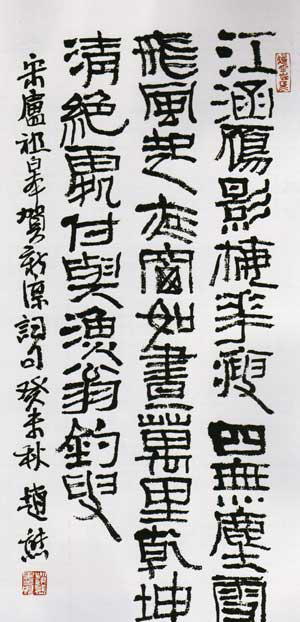 江涵鴈影梅華瘦四無塵雪
飛風起夜窗如晝萬里乾坤
清絕處付與漁翁釣叟
宋盧祖皋賀新涼詞句癸未秋趙熊